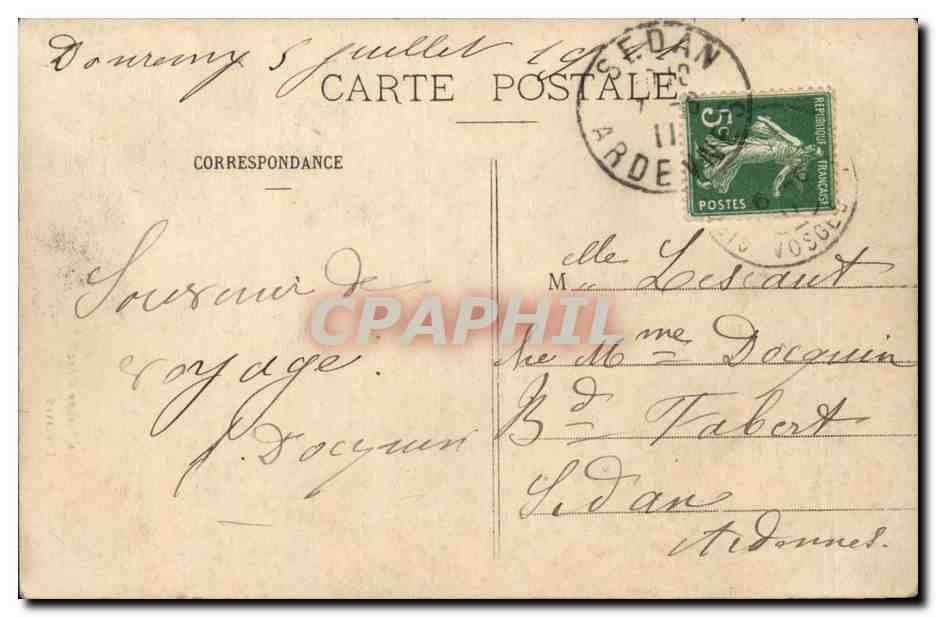 Domremy 5 Juillet 1911
CARTE POSTALE
SEDAN
11
ARDENNES
5c
REPUBLIQUE FRANCAISE
POSTES
VOSGES
CORRESPONDANCE
Souvenir de
voyage.
J. Docquin
Melle Lescaut
Me Mme Docquin
Bd Fabert
Sedan
Ardennes.
CPAPHIL